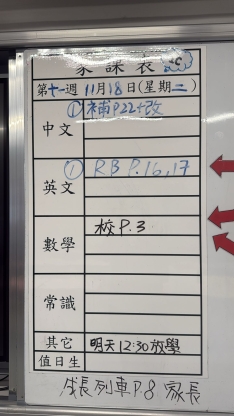 家課表 4C
第十一週 11月18日(星期二)
中文 ①補P22+改
英文 ① RB P.16,17
數學 校P.3
常識
其它 明天12:30放學
值日生
成長列車P8 家長